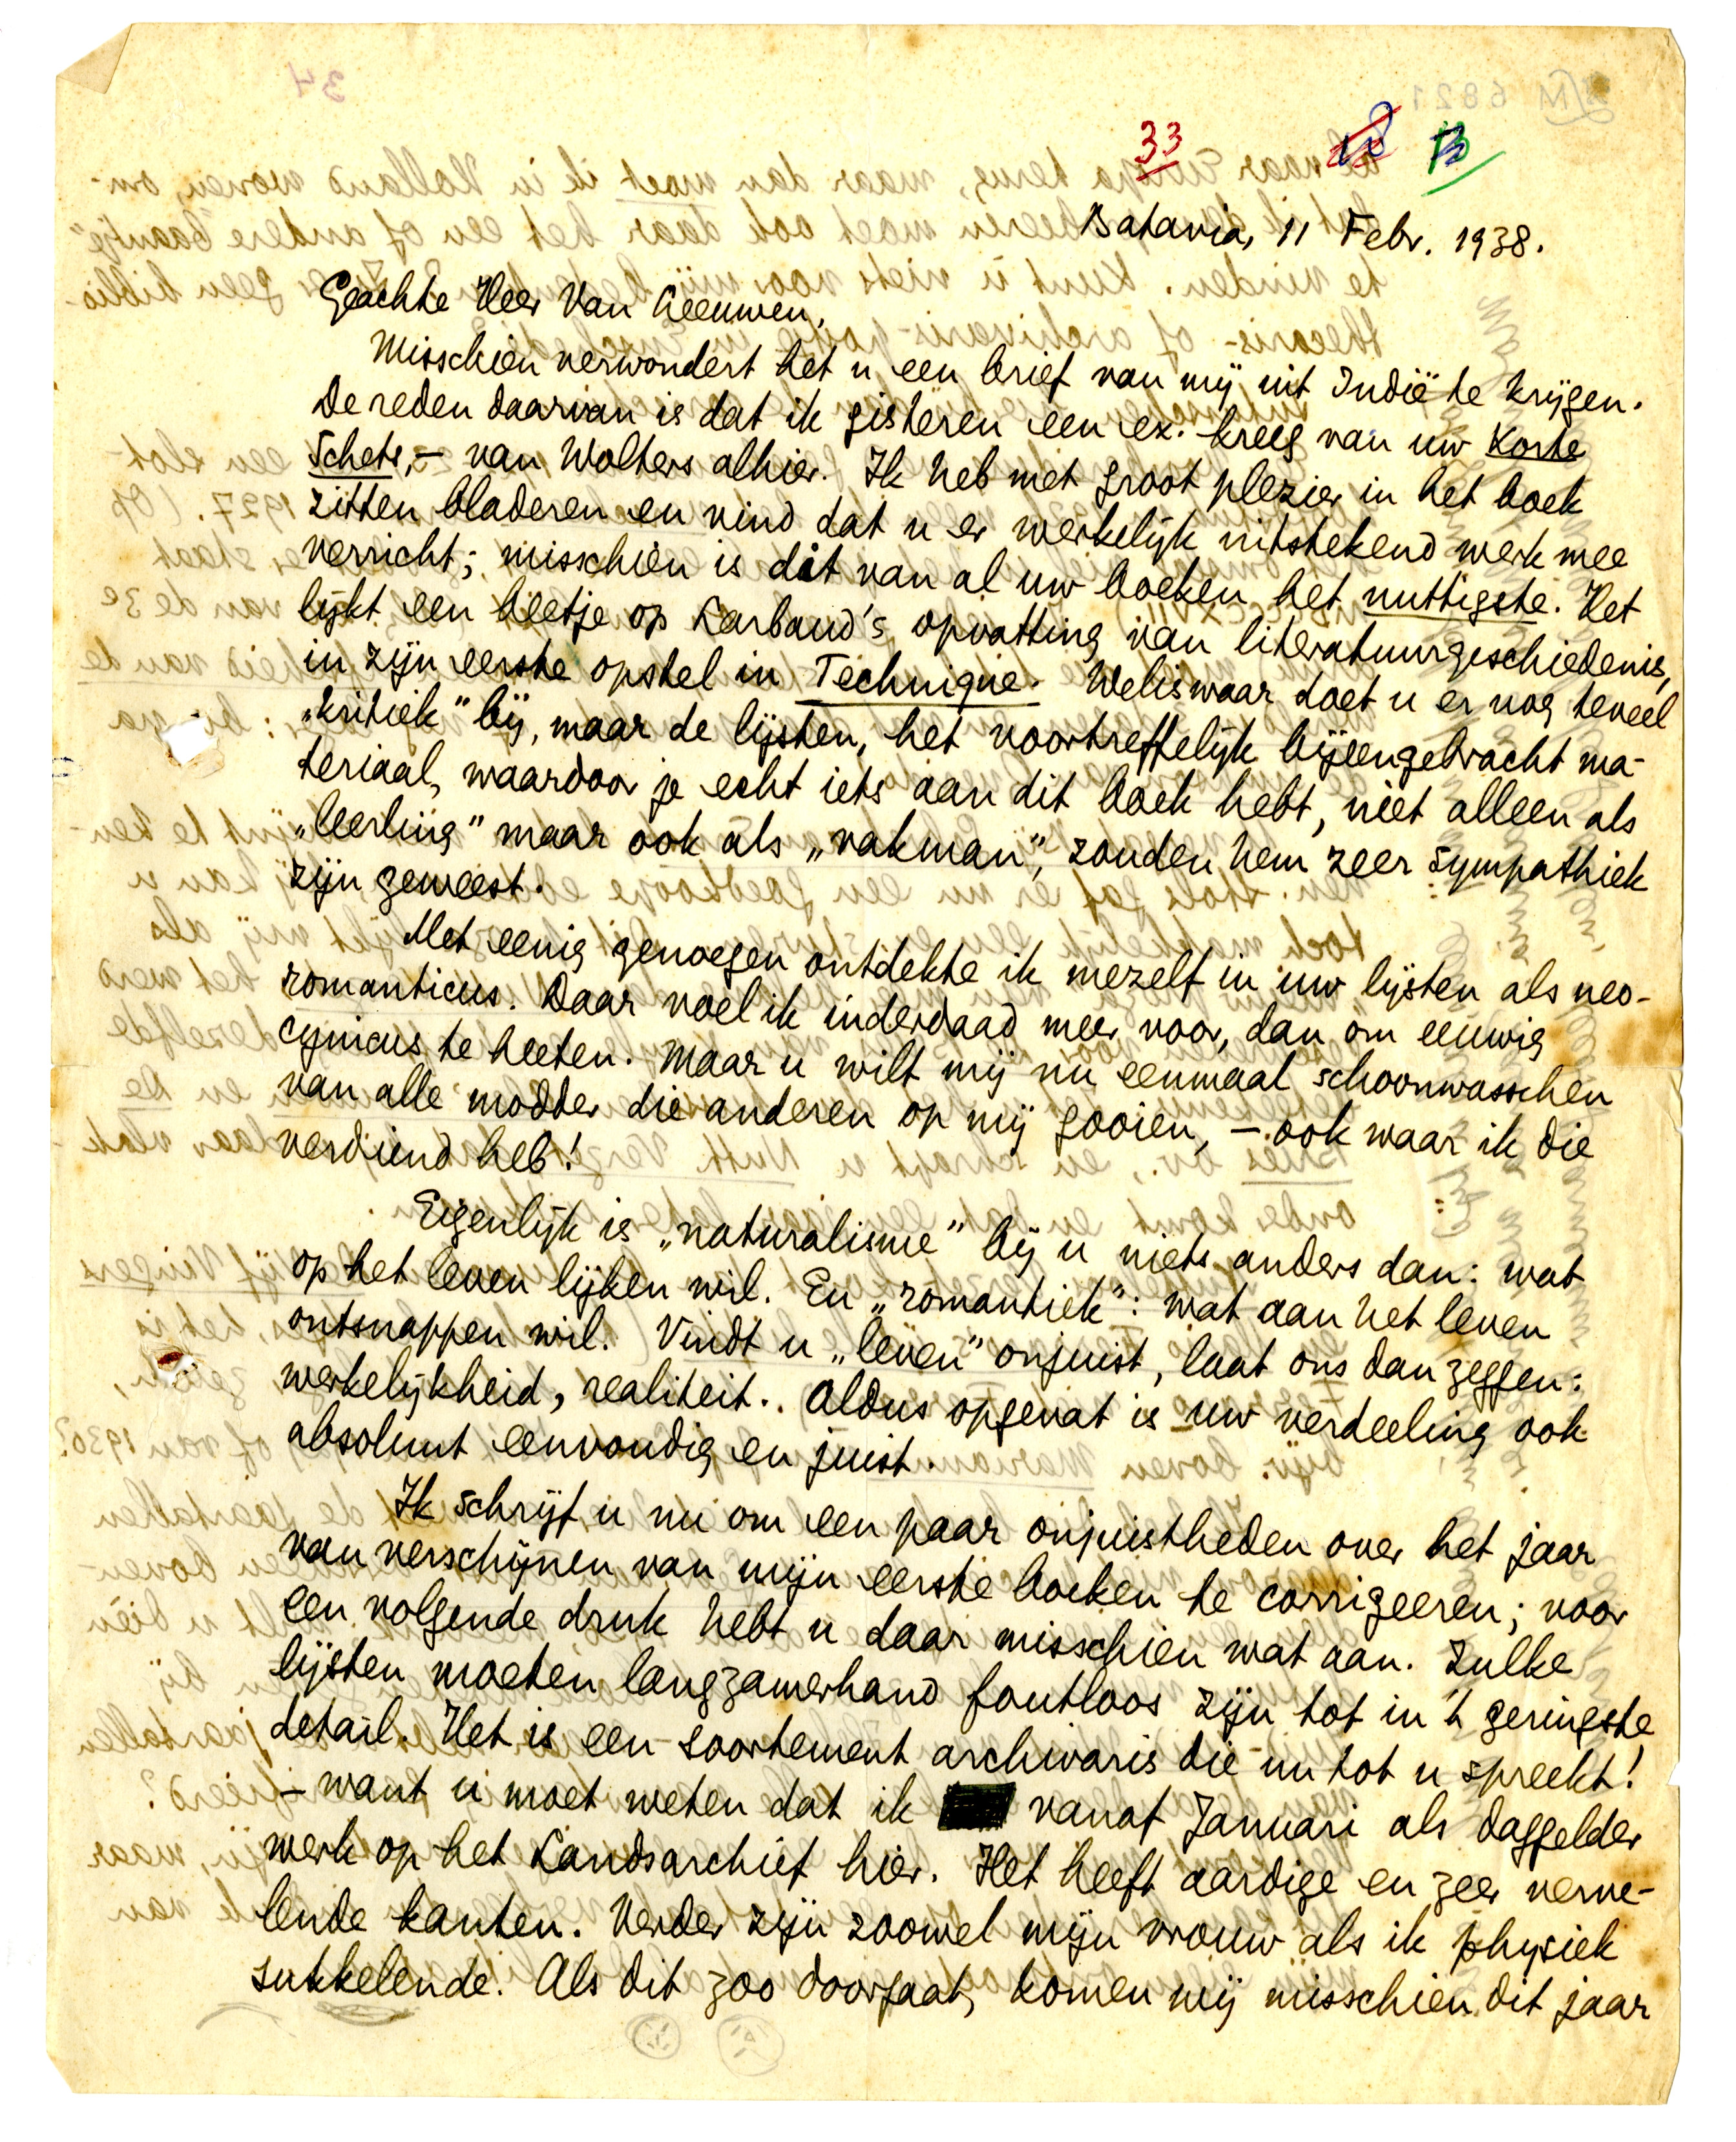 33
Batavia, 11 Febr. 1938.
Geachte Heer Van Leeuwen,
Misschien verwondert het u een brief van mij uit Indië te krijgen.
De reden daarvan is dat ik gisteren een ex. kreeg van uw Korte
Schets, – van Wolters alhier. Ik heb met groot plezier in het boek
zitten bladeren en vind dat u er werkelijk uitstekend werk mee
verricht; misschien is dit van al uw boeken het nuttigste. Het
lijkt een beetje op Larbaud's opvatting van literatuurgeschiedenis,
in zijn eerste opstel in Technique. Weliswaar doet u er nog teveel
„kritiek" bij, maar de lijsten, het voortreffelijk bijeengebracht ma-
teriaal, waardoor je echt iets aan dit boek hebt, niet alleen als
„leerling" maar ook als „vakman", zouden hem zeer sympathiek
zijn geweest.
Met eenig genoegen ontdekte ik mezelf in uw lijsten als neo-
romanticus. Daar voel ik inderdaad meer voor, dan om eeuwig
cynicus te heeten. Maar u wilt mij nu eenmaal schoonwasschen
van alle modder die anderen op mij gooien, – ook waar ik die
verdiend heb!
Eigenlijk is „naturalisme" bij u niets anders dan: wat
op het leven lijken wil. En „romantiek": wat aan het leven
ontsnappen wil. Vindt u „leven" onjuist, laat ons dan zeggen:
werkelijkheid, realiteit.. Aldus opgevat is uw verdeeling ook
absoluut eenvoudig en juist.
Ik schrijf u nu om een paar onjuistheden over het jaar
van verschijnen van mijn eerste boeken te corrigeeren; voor
een volgende druk hebt u daar misschien wat aan. Zulke
lijsten moeten langzamerhand foutloos zijn tot in 't geringste
detail. Het is een soortement archivaris die nu tot u spreekt!
– want u moet weten dat ik vanaf Januari als daggelder
werk op het Landsarchief hier. Het heeft aardige en zeer verve-
lende kanten. Verder zijn zoowel mijn vrouw als ik physiek
sukkelende. Als dit zoo doorgaat, komen wij misschien dit jaar